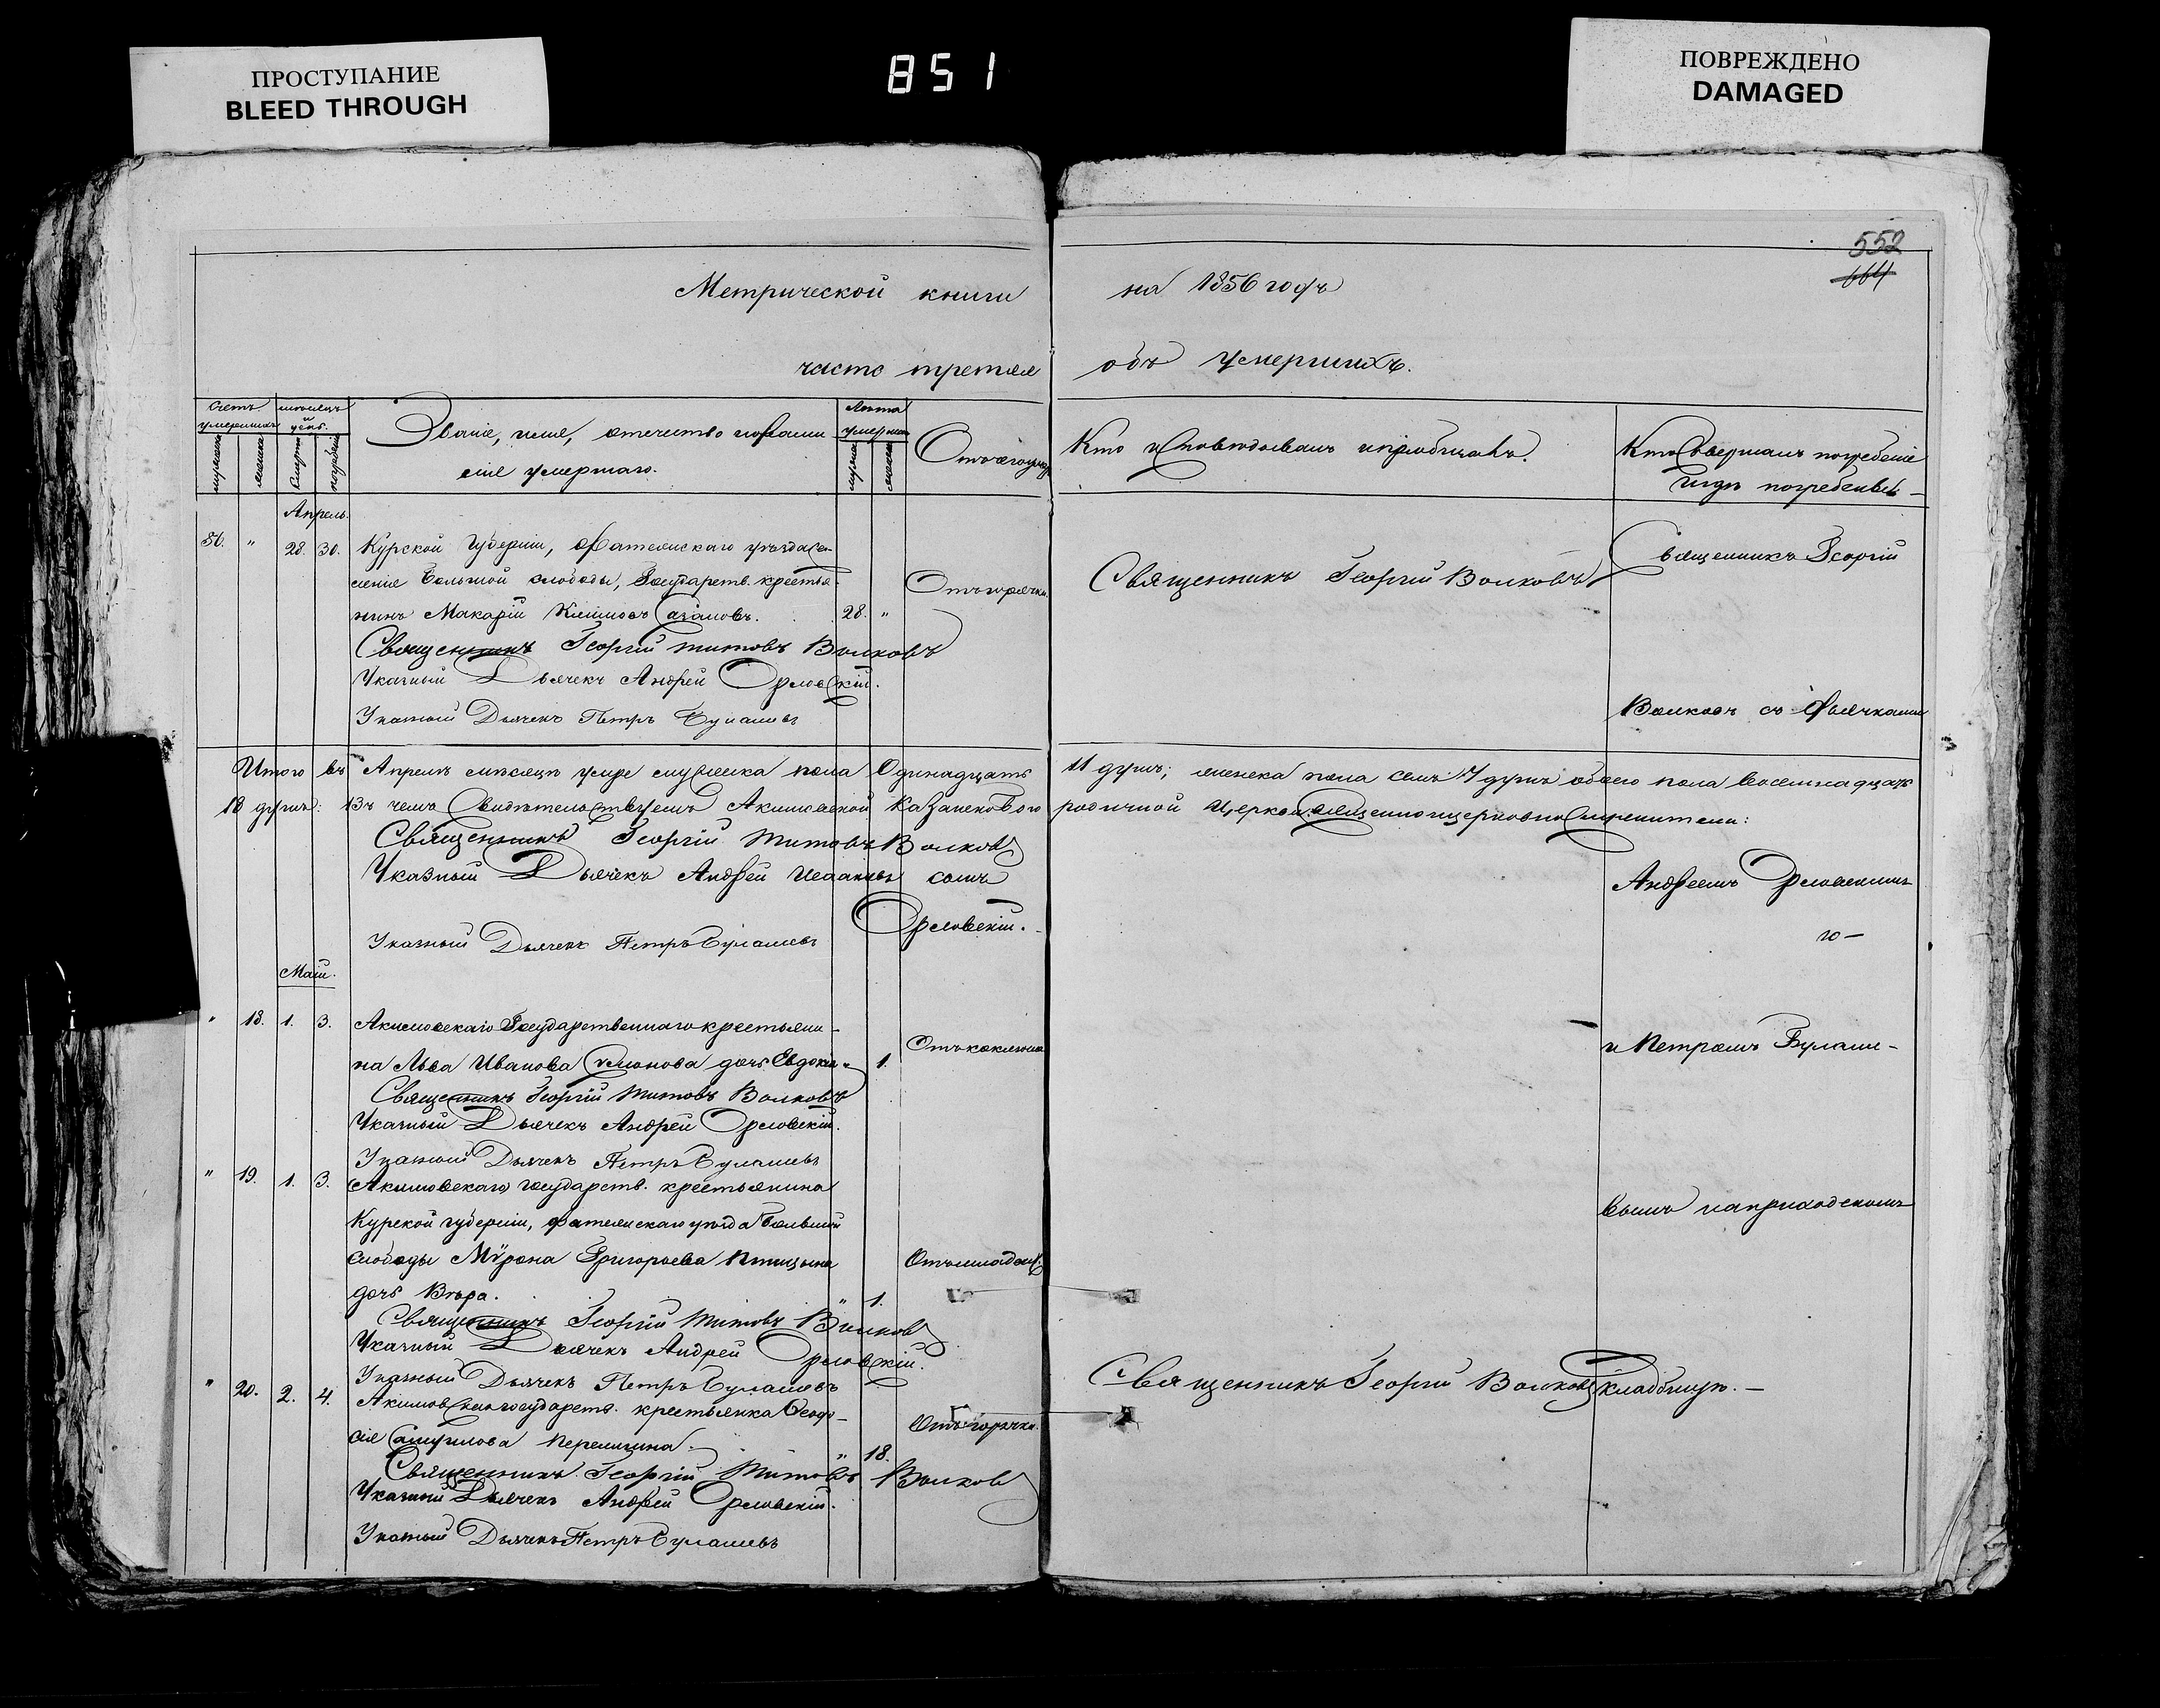 ПРОСТУПАНИЕ
BLEED THROUGH
851
ПОВРЕЖДЕНО
DAMAGED
552
Метрической книги на 1856 годъ
часть третья объ умершихъ.
Счетъ умершихъ
мѣсяцъ и день.
Званіе, имя, отечество и фами
лія умершаго.
Лѣта умерш
Отъ чего умеръ
Кто исповѣдывалъ и пріобщалъ.
Кто совершалъ погребеніе
и гдѣ погребены
мужска
женска
смерти
погребен
мужск
женск
Апрель.
" 28. 30. Курской Губерніи, Фатежскаго уѣзда се-
ленія Большой слободы, Государств. крестья
нинъ Макарій Климовъ Сазановъ. 28. "
Отъ горячки.
Священникъ Георгій Волковъ
Священникъ Георгій
Священникъ Георгій Титовъ Волковъ
Указный Дьячекъ Андрей Орловскій.
Указный Дьячекъ Петръ Булашевъ
Волковъ съ дьячками
Итого въ Апрелѣ мѣсяцѣ умре мужеска пола Одинадцать 11 душъ; женска пола семь 7 душъ обоего пола восемнадцать
18 душъ: Въ чемъ Свидѣтельствуемъ Акимовской Казанскобого родичной Церкви Священноцерковнослужители:
Священникъ Георгій Титовъ Волковъ
Указный Дьячекъ Андрей Иоанновъ сынъ
Орловскій.
Андреемъ Орловскимъ
Указный Дьячекъ Петръ Булашевъ
Май.
" 18. 1. 3. Акимовскаго Государственнаго крестьяни-
на Льва Иванова Симонова дочь Евдокія " 1.
Отъ коклюша
и Петромъ Булаше-
Священникъ Георгій Титовъ Волковъ
Указный Дьячекъ Андрей Орловскій.
Указный Дьячекъ Петръ Булашевъ
" 19. 1. 3. Акимовскаго государств. крестьянина
Курской губерніи, Фатежскаго уѣзда Большой
слободы Мѵрона Григорьева Птицына
дочь Вѣра. " 1.
Отъ младенч.
вымъ на приходскомъ
Священникъ Георгій Титовъ Волковъ
Указный Дьячекъ Андрей Орловскій.
Указный Дьячекъ Петръ Булашевъ
" 20. 2. 4. Акимовскаго государств. крестьянка Феодо-
сія Самуилова Перелицина. " 18.
Отъ горячки.
Священникъ Георгій Волковъ
кладбищѣ.
Священникъ Георгій Титовъ Волковъ
Указный Дьячекъ Андрей Орловскій.
Указный Дьячекъ Петръ Булашевъ